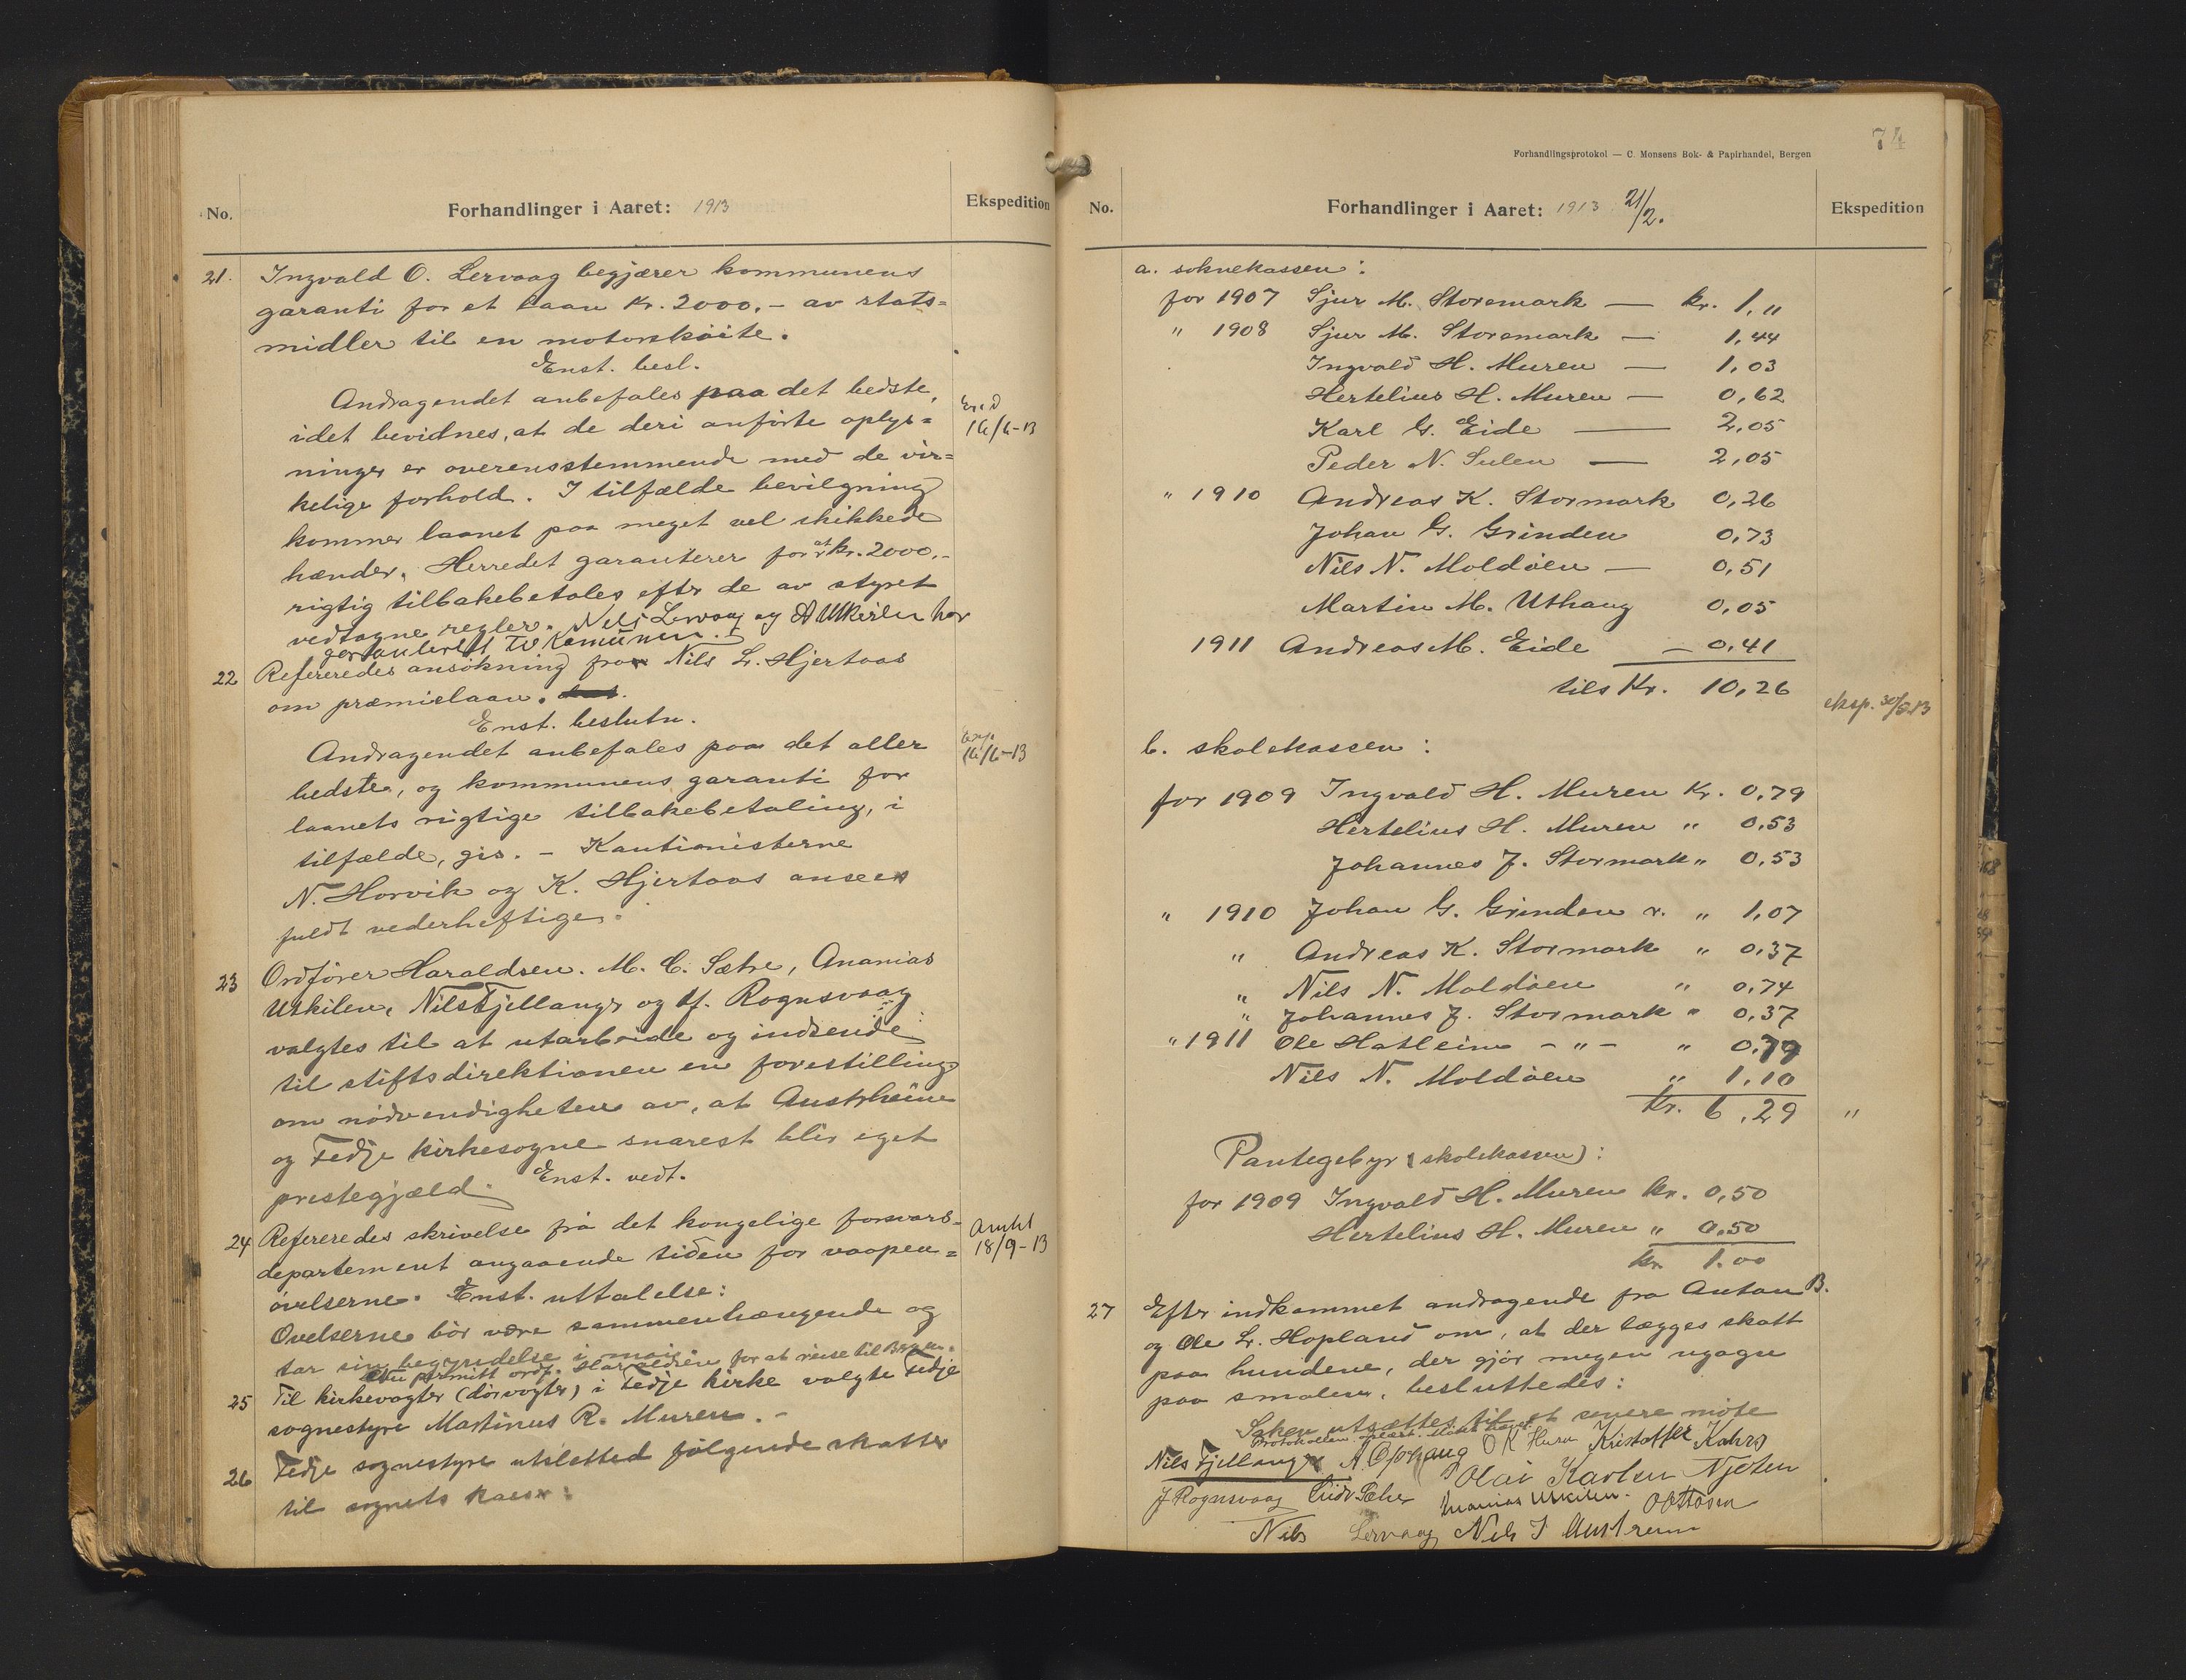 No.
Forhandlinger i Aaret: 1913
Ekspedition
21. Ingvald O. Lervaag begjærer kommunens
garanti for et laan Kr. 2000,- av stats=
midler til en motorskøite.
Enst. besl.
Andragendet anbefales paa det bedste,
idet bevidnes, at de deri anførte oplys=
16/6-13
ninger er overensstemmende med de vir=
kelige forhold. I tilfælde bevilgning
kommer laanet paa meget vel skikkede
hænder. Herredet garanterer for at kr. 2000,-
rigtig tilbakebetales efter de av styret
vedtagne regler. Nils Lervaag og A Utkilen har
garanteret til Komunen.
22 Refereredes ansøkning fra Nils L. Hjertaas
om præmielaan.
Enst. beslutn.
Andragendet anbefales paa det aller
Exp. 16/6-13
bedste, og kommunens garanti for
laanets rigtige tilbakebetaling, i
tilfælde, gis. - Kautionisterne
N. Horvik og K. Hjertaas ansees
fuldt vederheftige.
23 Ordfører Haraldsen. M. C. Sætre, Ananias
Utkilen, Nils Fjellanger og J. Rognsvaag
valgtes til at utarbeide og indsende
til stiftsdirektionen en forestilling
om nødvendigheten av, at Austrheim
og Fedje kirkesogne snarest blir eget
prestegjæld. Enst. vedt.
24 Refereredes skrivelse frå det kongelige forsvars-
Amtet 18/9-13
departement angaaende tiden for vaapen=
øvelserne. Enst. uttalelse:
Øvelserne bør være sammenhængende og
tar sin begyndelse i mai.
permitt ordf. Haraldsen for at reise til Bergen.
25 Til kirkevagter (dørvogter) i Fedje kirke valgte Fedje
sognestyre Martinus R. Muren. -
26 Fedje sognestyre utsletted følgende skatter
til sognets kasser:
74
Forhandlingsprotokol — C. Monsens Bok- & Papirhandel, Bergen
No.
Forhandlinger i Aaret: 1913 21/2.
Ekspedition
a. soknekassen:
for 1907 Sjur M. Storemark — kr. 1,"
" 1908 Sjur M. Storemark — 1,44
Ingvald H. Muren — 1,03
Hertelius H. Muren — 0,62
Karl G. Eide — 2,05
Peder N. Sulen — 2,05
" 1910 Andreas K. Stormark 0,26
Johan G. Grinden 0,73
Nils N. Moldøen — 0,51
Martin M. Uthaug 0,05
1911 Andreas M. Eide — 0,41
tils Kr. 10,26
b. skolekassen:
for 1909 Ingvald H. Muren Kr. 0,79
Hertelius H. Muren " 0,53
Johannes J. Stormark " 0,53
" 1910 Johan G. Grinden r. " 1,07
" Andreas K. Stormark " 0,37
" Nils N. Moldøen " 0,74
" Johannes J. Stormark " 0,37
" 1911 Ole Hatleim - " - " 0,79
Nils N. Moldøen " 1,10
Kr. 6,29 "
Pantegebyr (skolekassen):
for 1909 Ingvald H. Muren kr. 0,50
Hertelius H. Muren " 0,50
kr. 1.00
27 Efter indkommet andragende fra Anton B.
og Ole L. Hopland om, at der lægges skatt
paa hundene, der gjør megen ugagn
paa smalen, besluttedes:
Saken utsættes til et senere møte
Protokollen oplæst. Møtet hævet.
Nils Fjellanger Kristoffer Kahrs
Olai Karlsen Njøten
J Rognsvaag Ananias Utkilen. O Ottosen
Nils Lervaag Nils J Austrheim